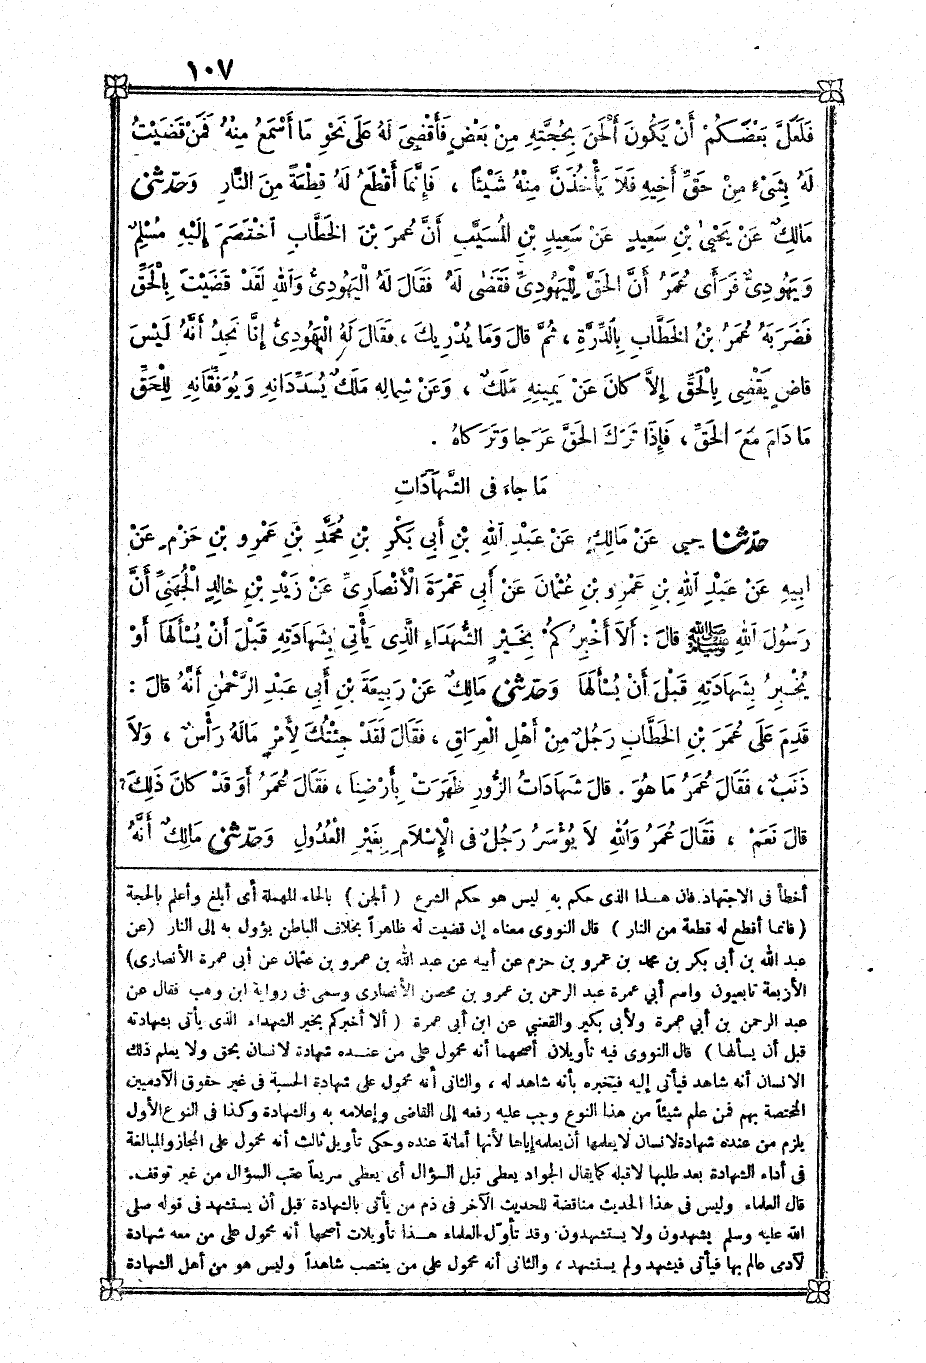 ١٠٧
فَلَعَلَّ بَعْضَكُمْ أَنْ يَكُونَ أَلْحَنَ بِحُجَّتِهِ مِنْ بَعْضٍ فَأَقْضِىَ لَهُ عَلَى نَحْوِ مَا أَسْمَعُ مِنْهُ فَمَنْ قَضَيْتُ
لَهُ بِشَىْءٍ مِنْ حَقِّ أَخِيهِ فَلاَ يَأْخُذَنَّ مِنْهُ شَيْئًا ، فَإِنَّمَا أَقْطَعُ لَهُ قِطْعَةً مِنَ النَّارِ وَحَدَّثَنِى
مَالِكٌ عَنْ يَحْيَى بْنِ سَعِيدٍ عَنْ سَعِيدِ بْنِ الْمُسَيَّبِ أَنَّ عُمَرَ بْنَ الْخَطَّابِ اخْتَصَمَ إِلَيْهِ مُسْلِمٌ
وَيَهُودِىٌّ فَرَأَى عُمَرُ أَنَّ الْحَقَّ لِلْيَهُودِىِّ فَقَضَى لَهُ فَقَالَ لَهُ الْيَهُودِىُّ وَاللهِ لَقَدْ قَضَيْتَ بِالْحَقِّ
فَضَرَبَهُ عُمَرُ بْنُ الْخَطَّابِ بِالدِّرَّةِ ، ثُمَّ قَالَ وَمَا يُدْرِيكَ ، فَقَالَ لَهُ الْيَهُودِىُّ إِنَّا نَجِدُ أَنَّهُ لَيْسَ
قَاضٍ يَقْضِى بِالْحَقِّ إِلاَّ كَانَ عَنْ يَمِينِهِ مَلَكٌ ، وَعَنْ شِمَالِهِ مَلَكٌ يُسَدِّدَانِهِ وَيُوَفِّقَانِهِ لِلْحَقِّ
مَا دَامَ مَعَ الْحَقِّ ، فَإِذَا تَرَكَ الْحَقَّ عَرَجَا وَتَرَكَاهُ .
مَا جَاءَ فِى الشَّهَادَاتِ
حَدَّثَنَا يحيى عَنْ مَالِكٍ عَنْ عَبْدِ اللهِ بْنِ أَبِى بَكْرِ بْنِ مُحَمَّدِ بْنِ عَمْرِو بْنِ حَزْمٍ عَنْ
أَبِيهِ عَنْ عَبْدِ اللهِ بْنِ عَمْرِو بْنِ عُثْمَانَ عَنْ أَبِى عَمْرَةَ الْأَنْصَارِىِّ عَنْ زَيْدِ بْنِ خَالِدٍ الْجُهَنِىِّ أَنَّ
رَسُولَ اللهِ ﷺ قَالَ : أَلاَ أُخْبِرُكُمْ بِخَيْرِ الشُّهَدَاءِ الَّذِى يَأْتِى بِشَهَادَتِهِ قَبْلَ أَنْ يُسْأَلَهَا أَوْ
يُخْبِرُ بِشَهَادَتِهِ قَبْلَ أَنْ يُسْأَلَهَا وَحَدَّثَنِى مَالِكٌ عَنْ رَبِيعَةَ بْنِ أَبِى عَبْدِ الرَّحْمٰنِ أَنَّهُ قَالَ :
قَدِمَ عَلَى عُمَرَ بْنِ الْخَطَّابِ رَجُلٌ مِنْ أَهْلِ الْعِرَاقِ ، فَقَالَ لَقَدْ جِئْتُكَ لِأَمْرٍ مَالَهُ رَأْسٌ ، وَلاَ
ذَنَبٌ ، فَقَالَ عُمَرُ مَا هُوَ . قَالَ شَهَادَاتُ الزُّورِ ظَهَرَتْ بِأَرْضِنَا ، فَقَالَ عُمَرُ أَوَقَدْ كَانَ ذَلِكَ؟
قَالَ نَعَمْ ، فَقَالَ عُمَرُ وَاللهِ لاَ يُؤْسَرُ رَجُلٌ فِى الْإِسْلاَمِ بِغَيْرِ الْعُدُولِ وَحَدَّثَنِى مَالِكٌ أَنَّهُ
أخطأ فى الاجتهاد فان هذا الذى حكم به ليس هو حكم الشرع ( ألحن ) بالحاء المهملة أى أبلغ وأعلم بالحجة
( فانما أقطع له قطعة من النار ) قال النووى معناه إن قضيت له ظاهراً بخلاف الباطن يؤول به إلى النار (عن
عبد الله بن أبى بكر بن محمد بن عمرو بن حزم عن أبيه عن عبد الله بن عمرو بن عثمان عن أبى عمرة الأنصارى)
الأربعة تابعيون واسم أبى عمرة عبد الرحمن بن عمرو بن محصن الأنصارى وسمى فى رواية ابن وهب فقال عن
عبد الرحمن بن أبى عمرة ولأبى بكير والقعنبى عن ابن أبى عمرة ( ألا أخبركم بخير الشهداء الذى يأتى بشهادته
قبل أن يسألها ) قال النووى فيه تأويلان أصحهما أنه محمول على من عنده شهادة لانسان بحق ولا يعلم ذلك
الانسان أنه شاهد فيأتى إليه فيخبره بأنه شاهد له ، والثانى أنه محمول على شهادة الحسبة فى غير حقوق الآدميين
المختصة بهم فمن علم شيئاً من هذا النوع وجب عليه رفعه إلى القاضى وإعلامه به والشهادة وكذا فى النوع الأول
يلزم من عنده شهادة لانسان لا يعلمها أن يعلمه إياها لأنها أمانة عنده وحكى تأويل ثالث أنه محمول على المجاز والمبالغة
فى أداء الشهادة بعد طلبها لاقبله كما يقال الجواد يعطى قبل السؤال أى يعطى سريعاً عقب السؤال من غير توقف.
قال العلماء وليس فى هذا الحديث مناقضة للحديث الآخر فى ذم من يأتى بالشهادة قبل أن يستشهد فى قوله صلى
الله عليه وسلم يشهدون ولا يستشهدون وقد تأول العلماء هذا تأويلات أصحها أنه محمول على من معه شهادة
لآدمى عالم بها فيأتى فيشهد ولم يستشهد ، والثانى أنه محمول على من ينتصب شاهداً وليس هو من أهل الشهادة